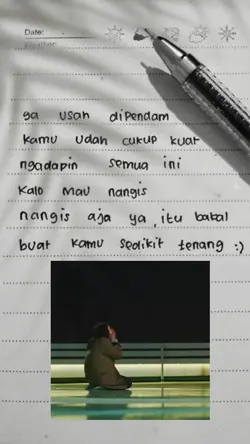 Date:
ga usah dipendam
kamu udah cukup kuat
ngadapin semua ini
kalo mau nangis
nangis aja ya, itu bakal
buat kamu sedikit tenang :)